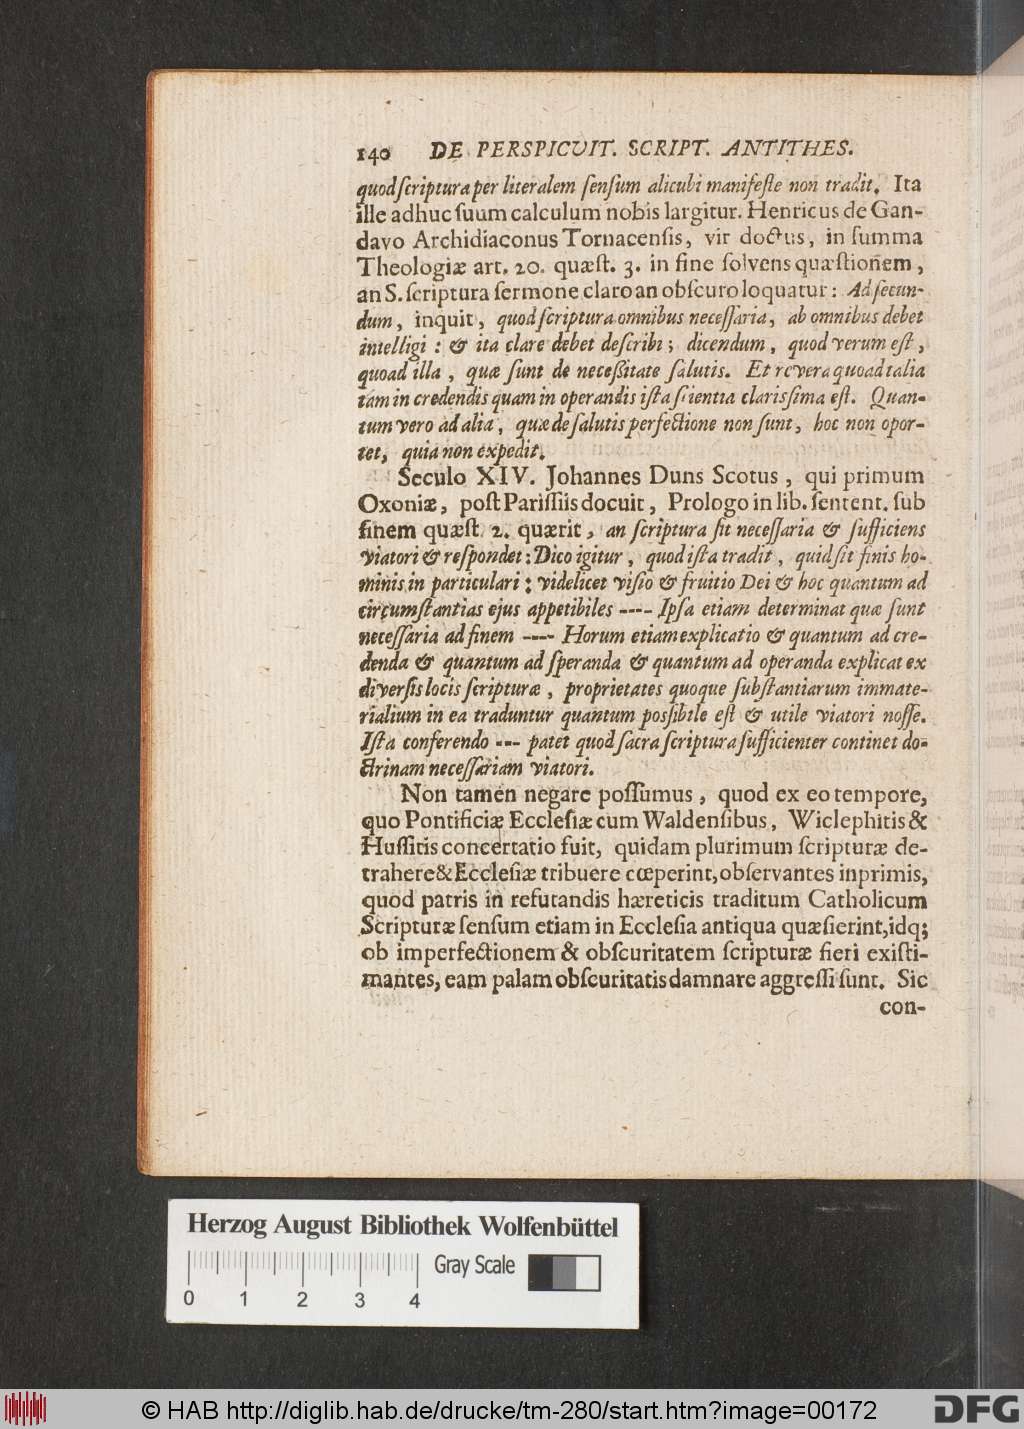 140 DE PERSPICVIT. SCRIPT. ANTITHES.
quod ſcriptura per literalem ſenſum alicubi manifeſte non tradit. Ita
ille adhuc ſuum calculum nobis largitur. Henricus de Gan-
davo Archidiaconus Tornacenſis, vir doctus, in ſumma
Theologiæ art. 20. quæſt. 3. in fine ſolvens quæſtionem,
an S. ſcriptura ſermone claro an obſcuro loquatur: Ad ſecun-
dum, inquit, quod ſcriptura omnibus neceſſaria, ab omnibus debet
intelligi: & ita clare debet deſcribi; dicendum, quod verum eſt,
quoad illa, quæ ſunt de neceßitate ſalutis. Et revera quoad talia
tam in credendis quam in operandis iſta ſcientia clarisſima eſt. Quan-
tum vero ad alia, quæ de ſalutis perfectione non ſunt, hoc non opor-
tet, quia non expedit.
Seculo XIV. Johannes Duns Scotus, qui primum
Oxoniæ, poſt Pariſſiis docuit, Prologo in lib. ſentent. ſub
finem quæſt 2. quærit, an ſcriptura ſit neceſſaria & ſufficiens
viatori & reſpondet: Dico igitur, quod iſta tradit, quid ſit finis ho-
minis in particulari: videlicet viſio & fruitio Dei & hoc quantum ad
circumſtantias ejus appetibiles ---- Ipſa etiam determinat quæ ſunt
neceſſaria ad finem ---- Horum etiam explicatio & quantum ad cre-
denda & quantum ad ſperanda & quantum ad operanda explicat ex
diverſis locis ſcripturæ, proprietates quoque ſubſtantiarum immate-
rialium in ea traduntur quantum posſibile eſt & utile viatori noſſe.
Iſta conferendo --- patet quod ſacra ſcriptura ſufficienter continet do-
ctrinam neceſſariam viatori.
Non tamen negare poſſumus, quod ex eo tempore,
quo Pontificiæ Eccleſiæ cum Waldenſibus, Wiclephitis &
Huſſitis concertatio fuit, quidam plurimum ſcripturæ de-
trahere & Eccleſiæ tribuere cœperint, obſervantes inprimis,
quod patris in refutandis hæreticis traditum Catholicum
Scripturæ ſenſum etiam in Eccleſia antiqua quæſierint, idq;
ob imperfectionem & obſcuritatem ſcripturæ fieri exiſti-
mantes, eam palam obſcuritatis damnare aggreſſi ſunt. Sic
con-
Herzog August Bibliothek Wolfenbüttel
Gray Scale
0 1 2 3 4
© HAB http://diglib.hab.de/drucke/tm-280/start.htm?image=00172
DFG